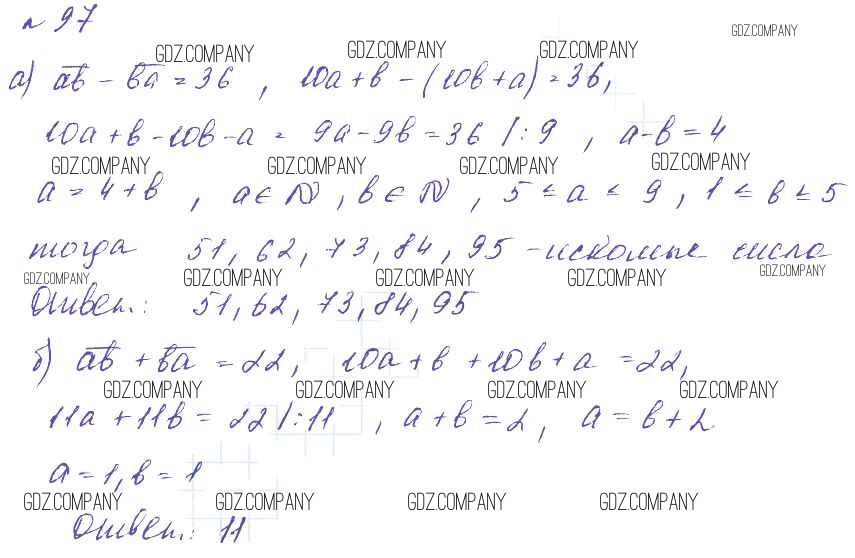 № 97
GDZ.COMPANY GDZ.COMPANY GDZ.COMPANY GDZ.COMPANY
а) ав - ва = 36 , 10а + в - (10в + а) = 36,
10а + в - 10в - а = 9а - 9в = 36 / : 9 , а - в = 4
GDZ.COMPANY GDZ.COMPANY GDZ.COMPANY GDZ.COMPANY
а = 4 + в , а ∈ N , в ∈ N , 5 ≤ а ≤ 9 , 1 ≤ в ≤ 5
тогда 51, 62, 73, 84, 95 - искомые числа
GDZ.COMPANY GDZ.COMPANY GDZ.COMPANY GDZ.COMPANY GDZ.COMPANY
Ответ: 51, 62, 73, 84, 95
б) ав + ва = 22, 10а + в + 10в + а = 22,
GDZ.COMPANY GDZ.COMPANY GDZ.COMPANY GDZ.COMPANY
11а + 11в = 22 / : 11 , а + в = 2, а = в + 2
а = 1, в = 1
GDZ.COMPANY GDZ.COMPANY GDZ.COMPANY GDZ.COMPANY
Ответ: 11